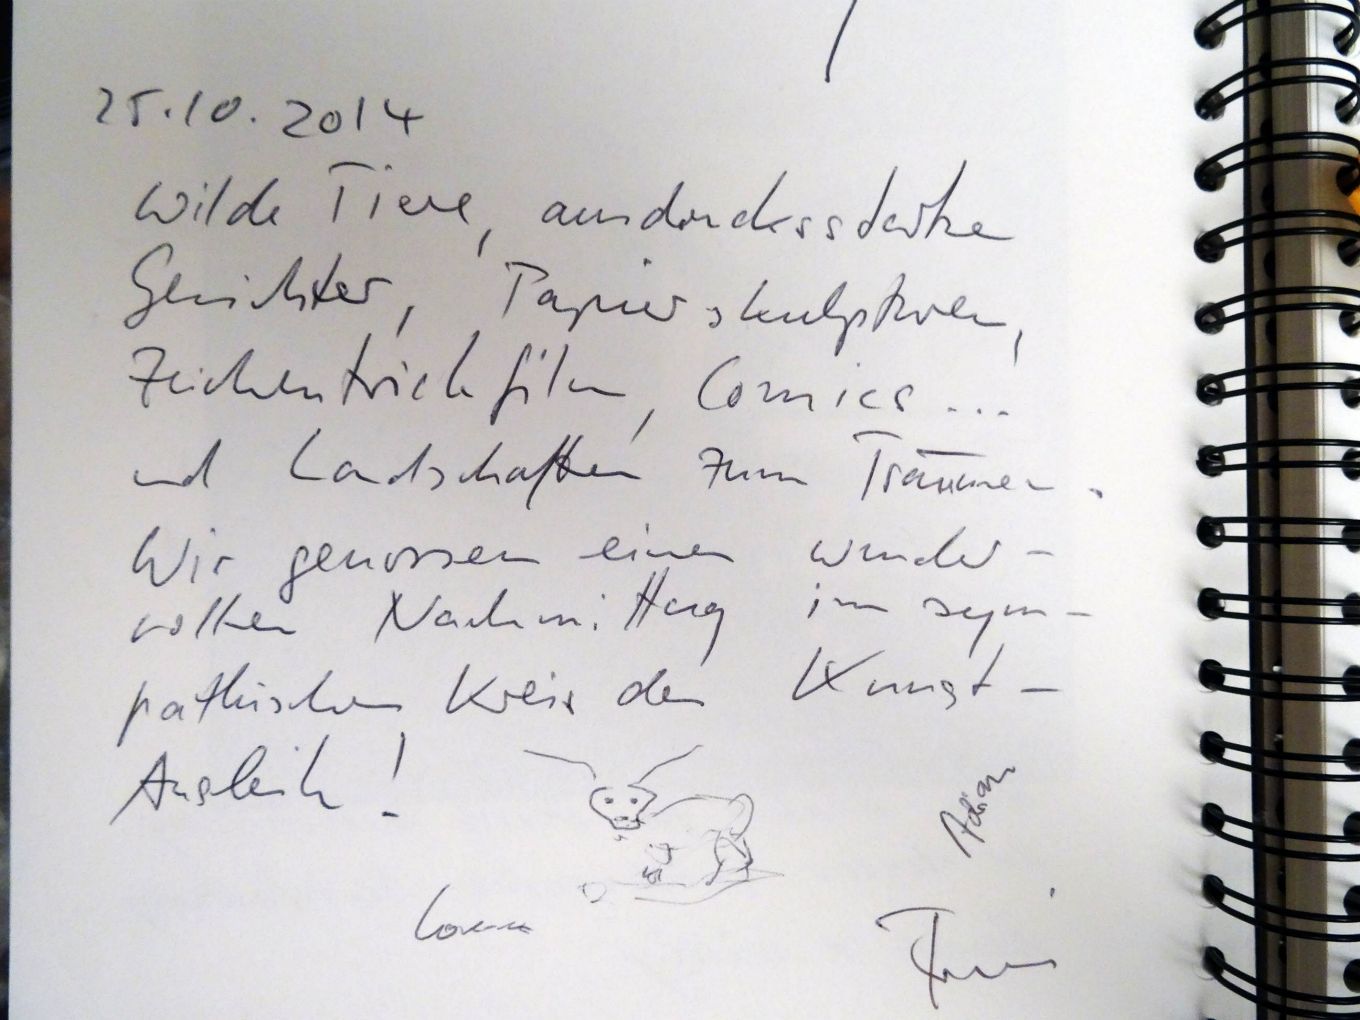 25.10.2014
Wilde Tiere, ausdrucksstarke
Gesichter, Papierskulpturen,
Zeichentrickfilm, Comics ...
und Landschaften zum Träumen.
Wir genossen einen wunder-
vollen Nachmittag im sym-
pathischen Kreis der Kunst-
Ausleihe!
Adrian